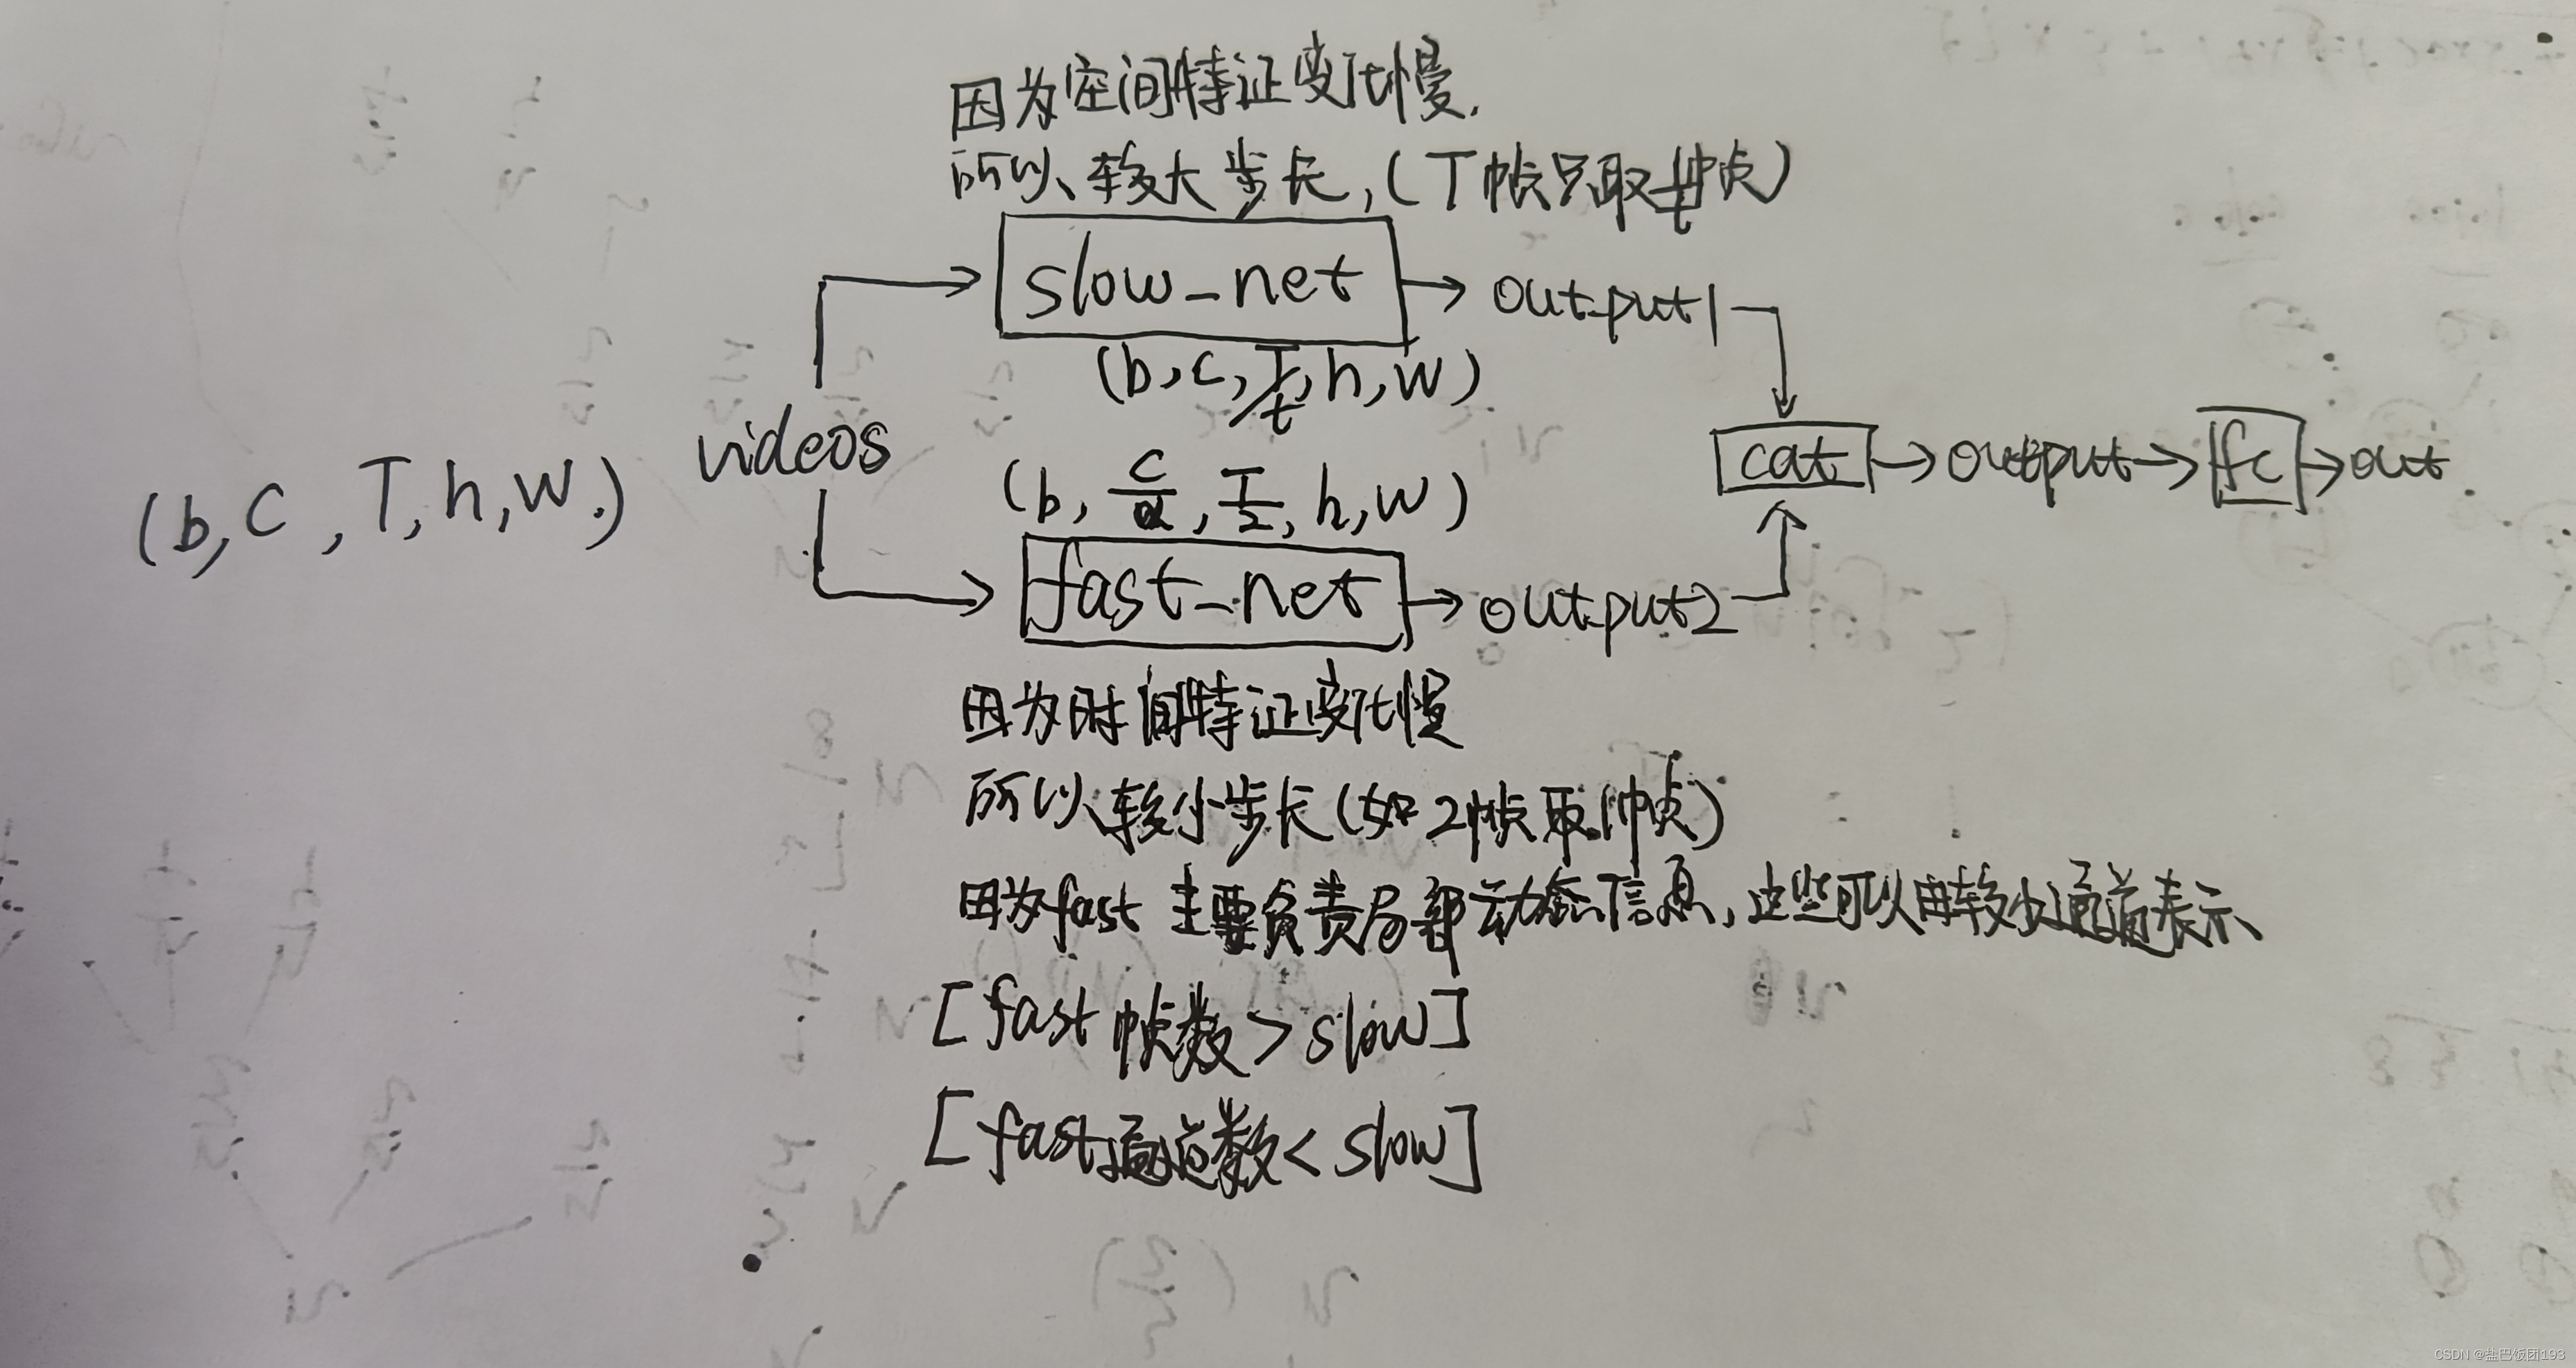 因为空间特证变化慢.
所以较大步长,(T帧只取T/t帧)
slow_net
output1
(b,c,T/t,h,w)
videos
(b,C,T,h,w.)
(b,C/α,T/2,h,w)
cat
output
fc
out
fast_net
output2
因为时间特证变化慢
所以较小步长(如2帧取1帧)
因为fast主要负责局部动态信息,这些可以由较少通道表示
[fast帧数>slow]
[fast通道数<slow]
CSDN @盐巴饭团193